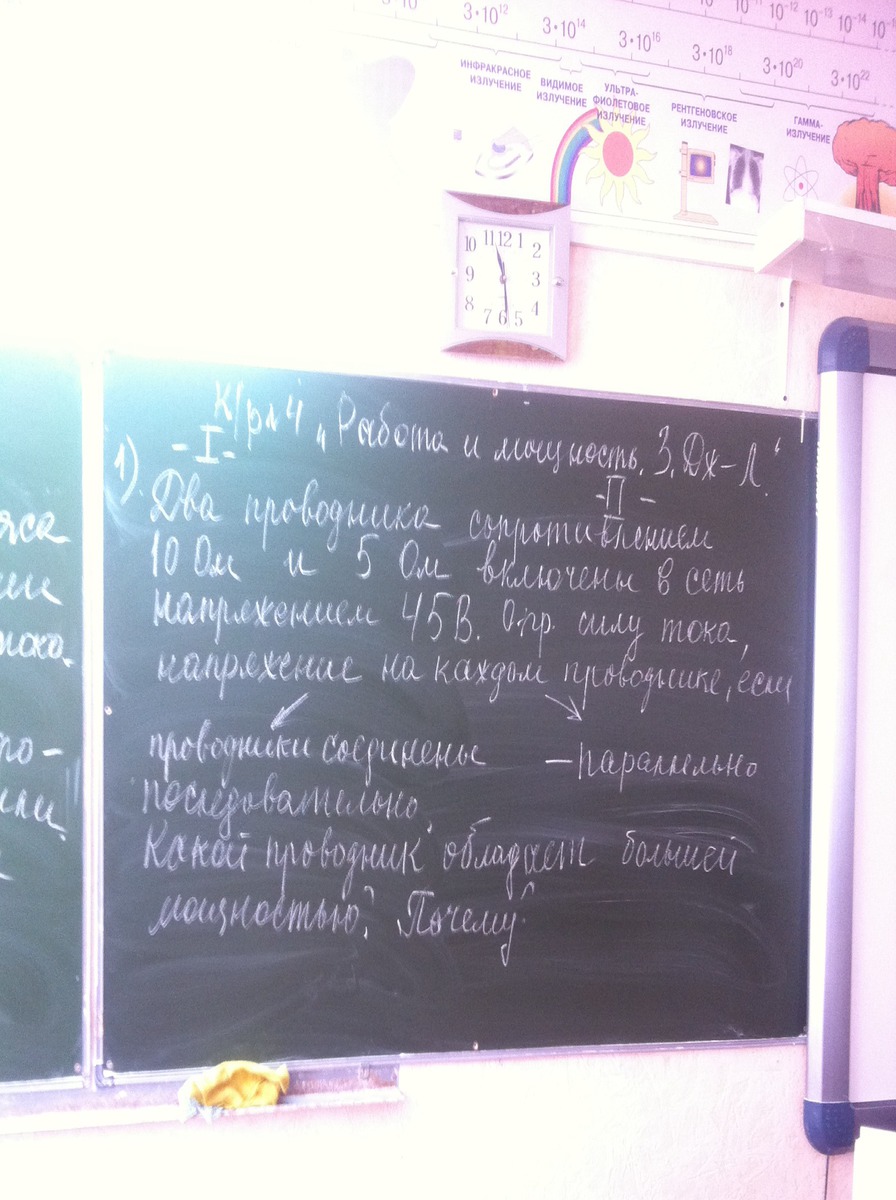 3·10¹² 3·10¹⁴ 3·10¹⁶ 3·10¹⁸ 3·10²⁰ 3·10²²
10⁻¹² 10⁻¹³ 10⁻¹⁴
ИНФРАКРАСНОЕ ИЗЛУЧЕНИЕ
ВИДИМОЕ ИЗЛУЧЕНИЕ
УЛЬТРА-
ФИОЛЕТОВОЕ
ИЗЛУЧЕНИЕ
РЕНТГЕНОВСКОЕ
ИЗЛУЧЕНИЕ
ГАММА-
ИЗЛУЧЕНИЕ
11 12 1
10 2
9 3
8 4
7 6 5
К/р №4 „Работа и мощность. З. Дж-Л."
-I- -II-
1). Два проводника сопротивлением
10 Ом и 5 Ом включены в сеть
напряжением 45В. Опр. силу тока,
напряжение на каждом проводнике, если
проводники соединены – параллельно
последовательно.
Какой проводник обладает большей
мощностью? Почему?